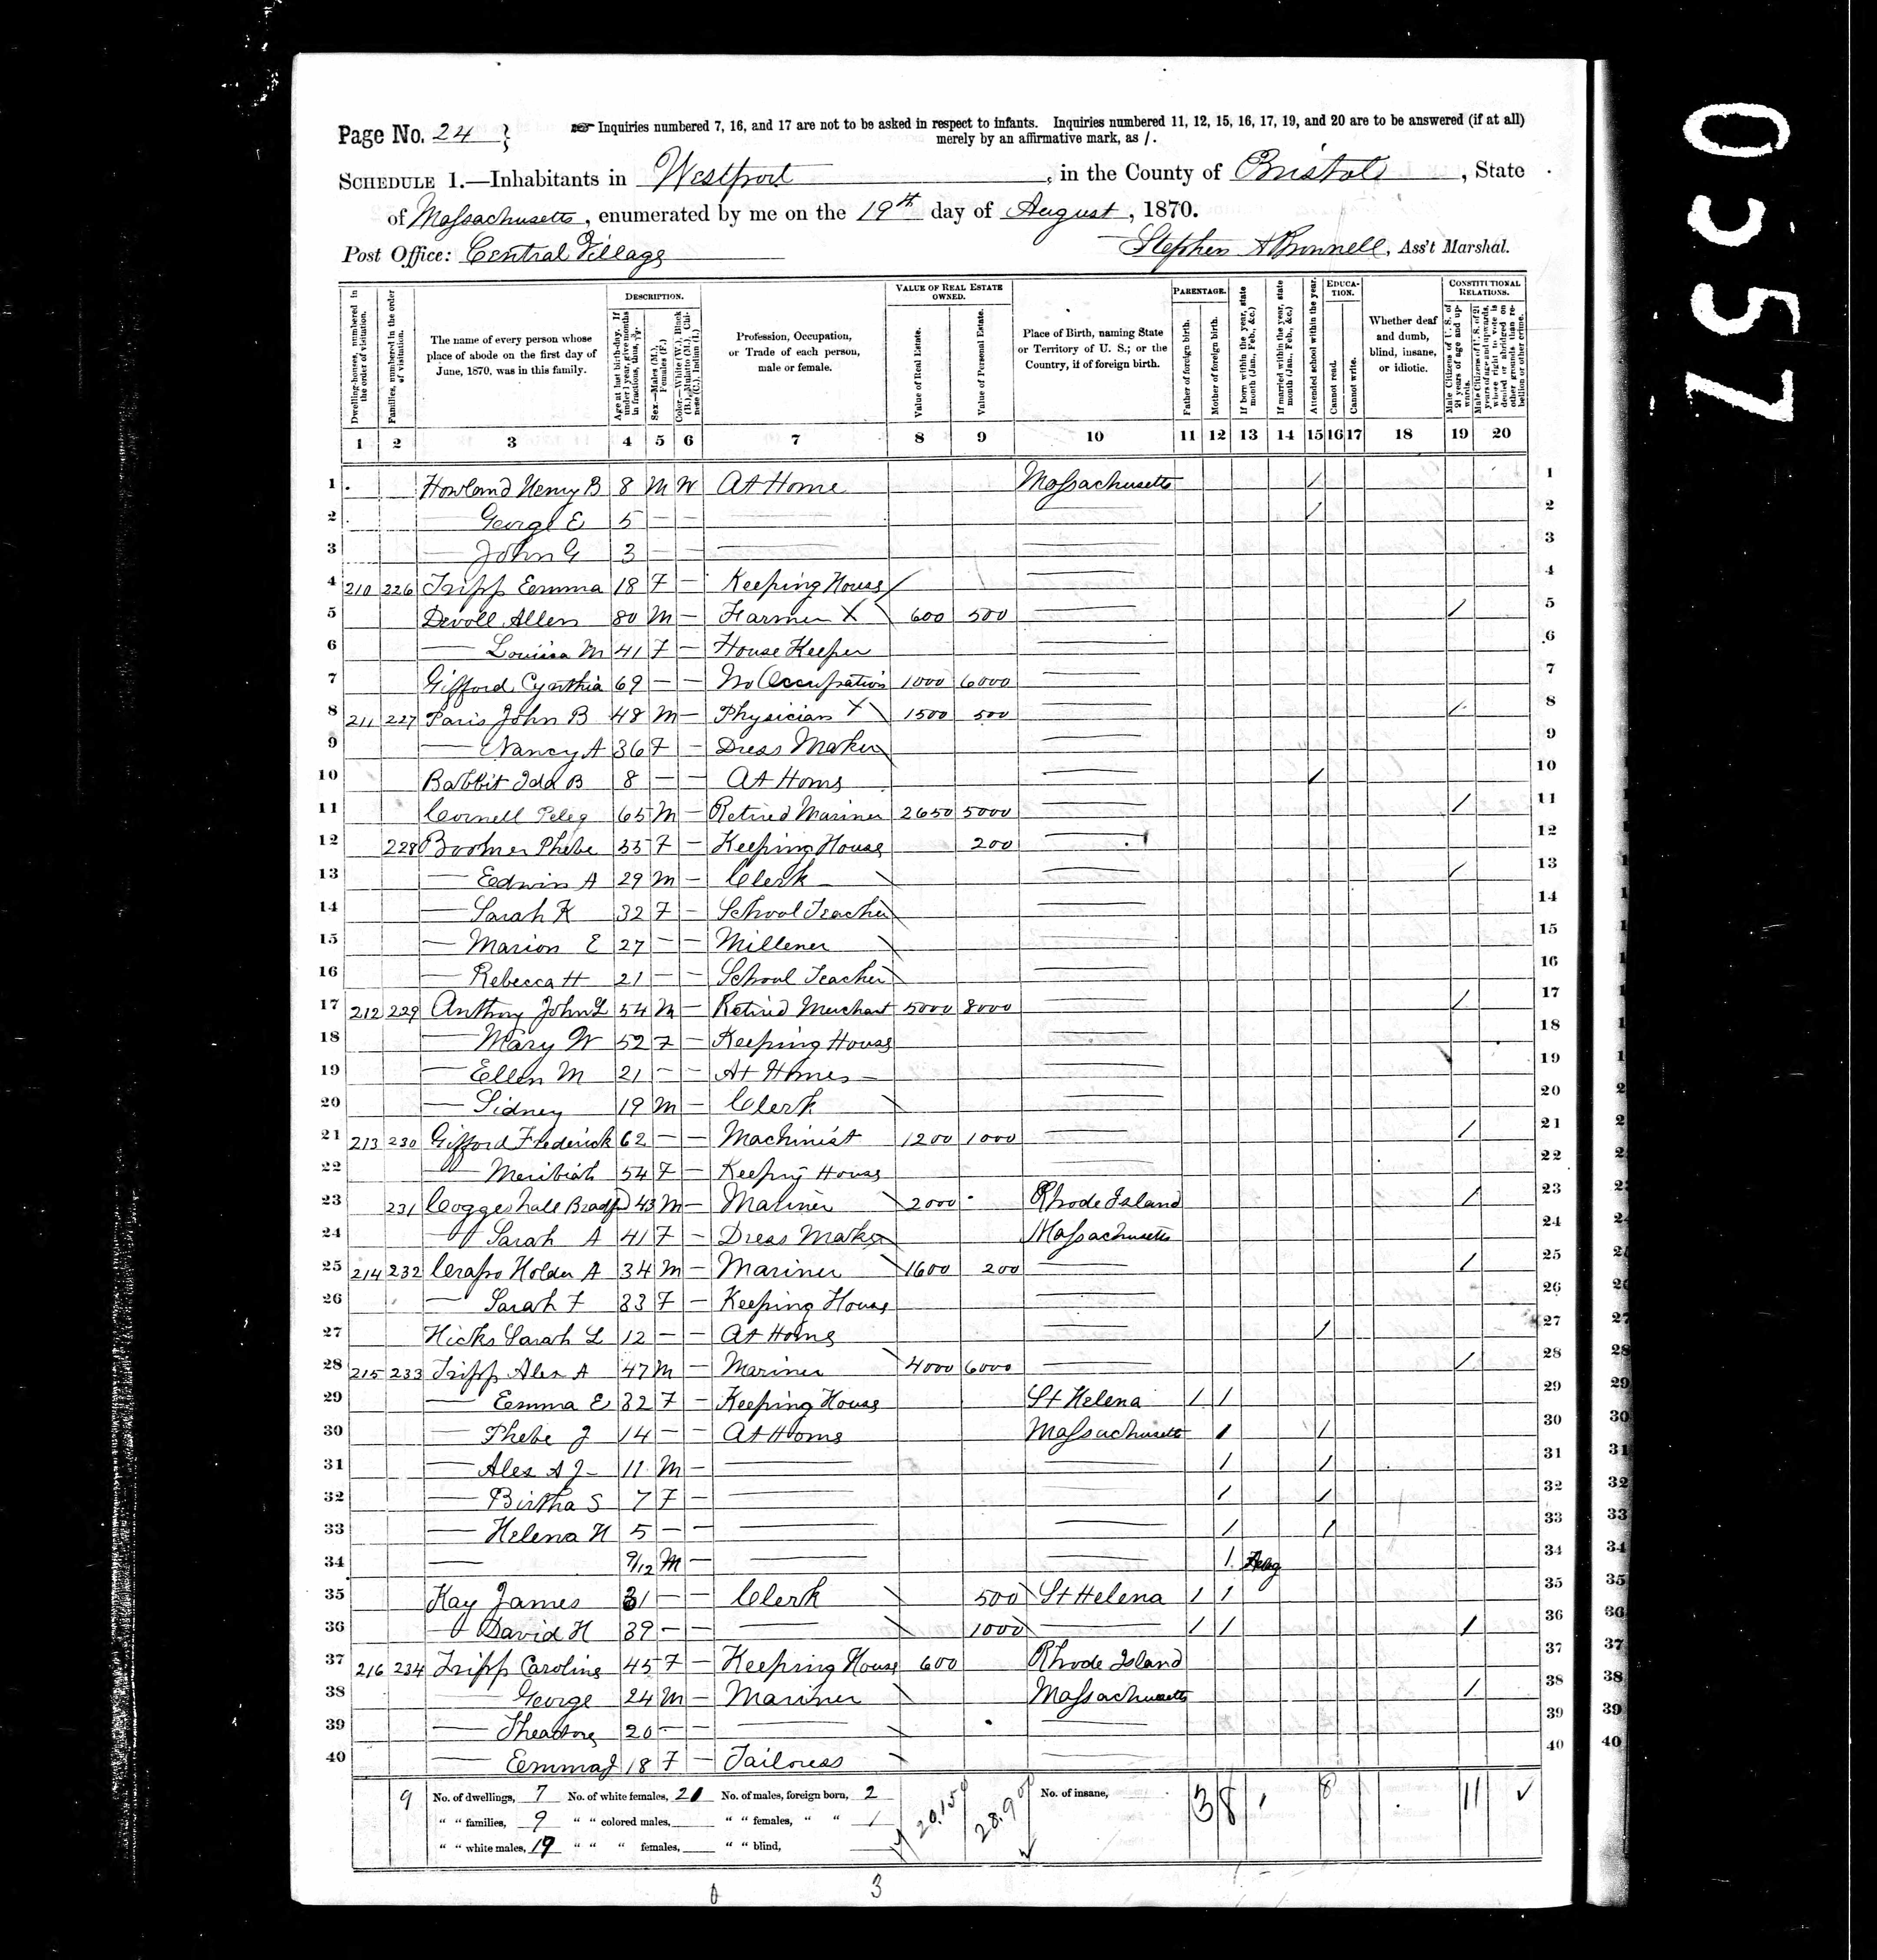 Page No. 24
Inquiries numbered 7, 16, and 17 are not to be asked in respect to infants. Inquiries numbered 11, 12, 15, 16, 17, 19, and 20 are to be answered (if at all)
merely by an affirmative mark, as /.
SCHEDULE 1.—Inhabitants in Westport, in the County of Bristol, State
of Massachusetts, enumerated by me on the 19th day of August, 1870.
Post Office: Central Village
Stephen A Brownell, Ass't Marshal.
0357
Dwelling-houses, numbered in the order of visitation.
Families, numbered in the order of visitation.
The name of every person whose place of abode on the first day of June, 1870, was in this family.
DESCRIPTION.
Age at last birth-day. If under 1 year, give months in fractions, thus, 3/12.
Sex.—Males (M.), Females (F.)
Color.—White (W.), Black (B.), Mulatto (M.), Chinese (C.), Indian (I.)
Profession, Occupation, or Trade of each person, male or female.
VALUE OF REAL ESTATE OWNED.
Value of Real Estate.
Value of Personal Estate.
Place of Birth, naming State or Territory of U. S.; or the Country, if of foreign birth.
PARENTAGE.
Father of foreign birth.
Mother of foreign birth.
If born within the year, state month (Jan., Feb., &c.)
If married within the year, state month (Jan., Feb., &c.)
Attended school within the year.
EDUCATION.
Cannot read.
Cannot write.
Whether deaf and dumb, blind, insane, or idiotic.
CONSTITUTIONAL RELATIONS.
Male Citizens of U. S. of 21 years of age and upwards.
Male Citizens of U. S. of 21 years of age and upwards, whose right to vote is denied or abridged on other grounds than rebellion or other crime.
1 2 3 4 5 6 7 8 9 10 11 12 13 14 15 16 17 18 19 20
1 Howland Henry B 8 M W At Home Massachusetts / 1
2 — George E 5 — — — — / 2
3 — John G 3 — — — — 3
4 210 226 Tripp Emma 18 F — Keeping House — 4
5 Devoll Allen 80 M — Farmer X 600 500 — / 5
6 — Louisa M 41 F — House Keeper — 6
7 Gifford Cynthia 69 — — No Occupation 1000 6000 — 7
8 211 227 Paris John B 48 M — Physician X 1500 500 — / 8
9 — Nancy A 36 F — Dress Maker — 9
10 Babbit Ida B 8 — — At Home — / 10
11 Cornell Peleg 65 M — Retired Mariner 2650 5000 — / 11
12 228 Boomer Phebe 33 F — Keeping House 200 — 12
13 — Edwin A 29 M — Clerk — / 13
14 — Sarah K 32 F — School Teacher — 14
15 — Marion E 27 — — Millener — 15
16 — Rebecca H 21 — — School Teacher — 16
17 212 229 Anthony John L 54 M — Retired Merchant 5000 8000 — / 17
18 — Mary W 52 F — Keeping House — 18
19 — Ellen M 21 — — At Home — 19
20 — Sidney 19 M — Clerk — 20
21 213 230 Gifford Frederick 62 — — Machinist 1200 1000 — / 21
22 — Meribiah 54 F — Keeping House — 22
23 231 Coggeshall Bradfd 43 M — Mariner 2000 Rhode Island / 23
24 — Sarah A 41 F — Dress Maker Massachusetts 24
25 214 232 Crapo Holder A 34 M — Mariner 1600 200 — / 25
26 — Sarah F 33 F — Keeping House — 26
27 Hicks Sarah L 12 — — At Home — / 27
28 215 233 Tripp Alex A 47 M — Mariner 4000 6000 — / 28
29 — Emma E 32 F — Keeping House St Helena / / 29
30 — Phebe J 14 — — At Home Massachusetts / / 30
31 — Alex A J 11 M — — — / / 31
32 — Birtha S 7 F — — — / / 32
33 — Helena H 5 — — — — / / 33
34 — 9/12 M — — — / Aug 34
35 Kay James 31 — — Clerk 500 St Helena / / 35
36 — David H 39 — — — 1000 — / / / 36
37 216 234 Tripp Caroline 45 F — Keeping House 600 Rhode Island 37
38 — George 24 M — Mariner Massachusetts / 38
39 — Theadore 20 — — — — 39
40 — Emma J 18 F — Tailoress — 40
9 No. of dwellings, 7 No. of white females, 21 No. of males, foreign born, 2 20.150 28.900 No. of insane, 3 8 8 11 ✓
" " families, 9 " " colored males, " " females, " " 1
" " white males, 19 " " " females, " " blind,
3